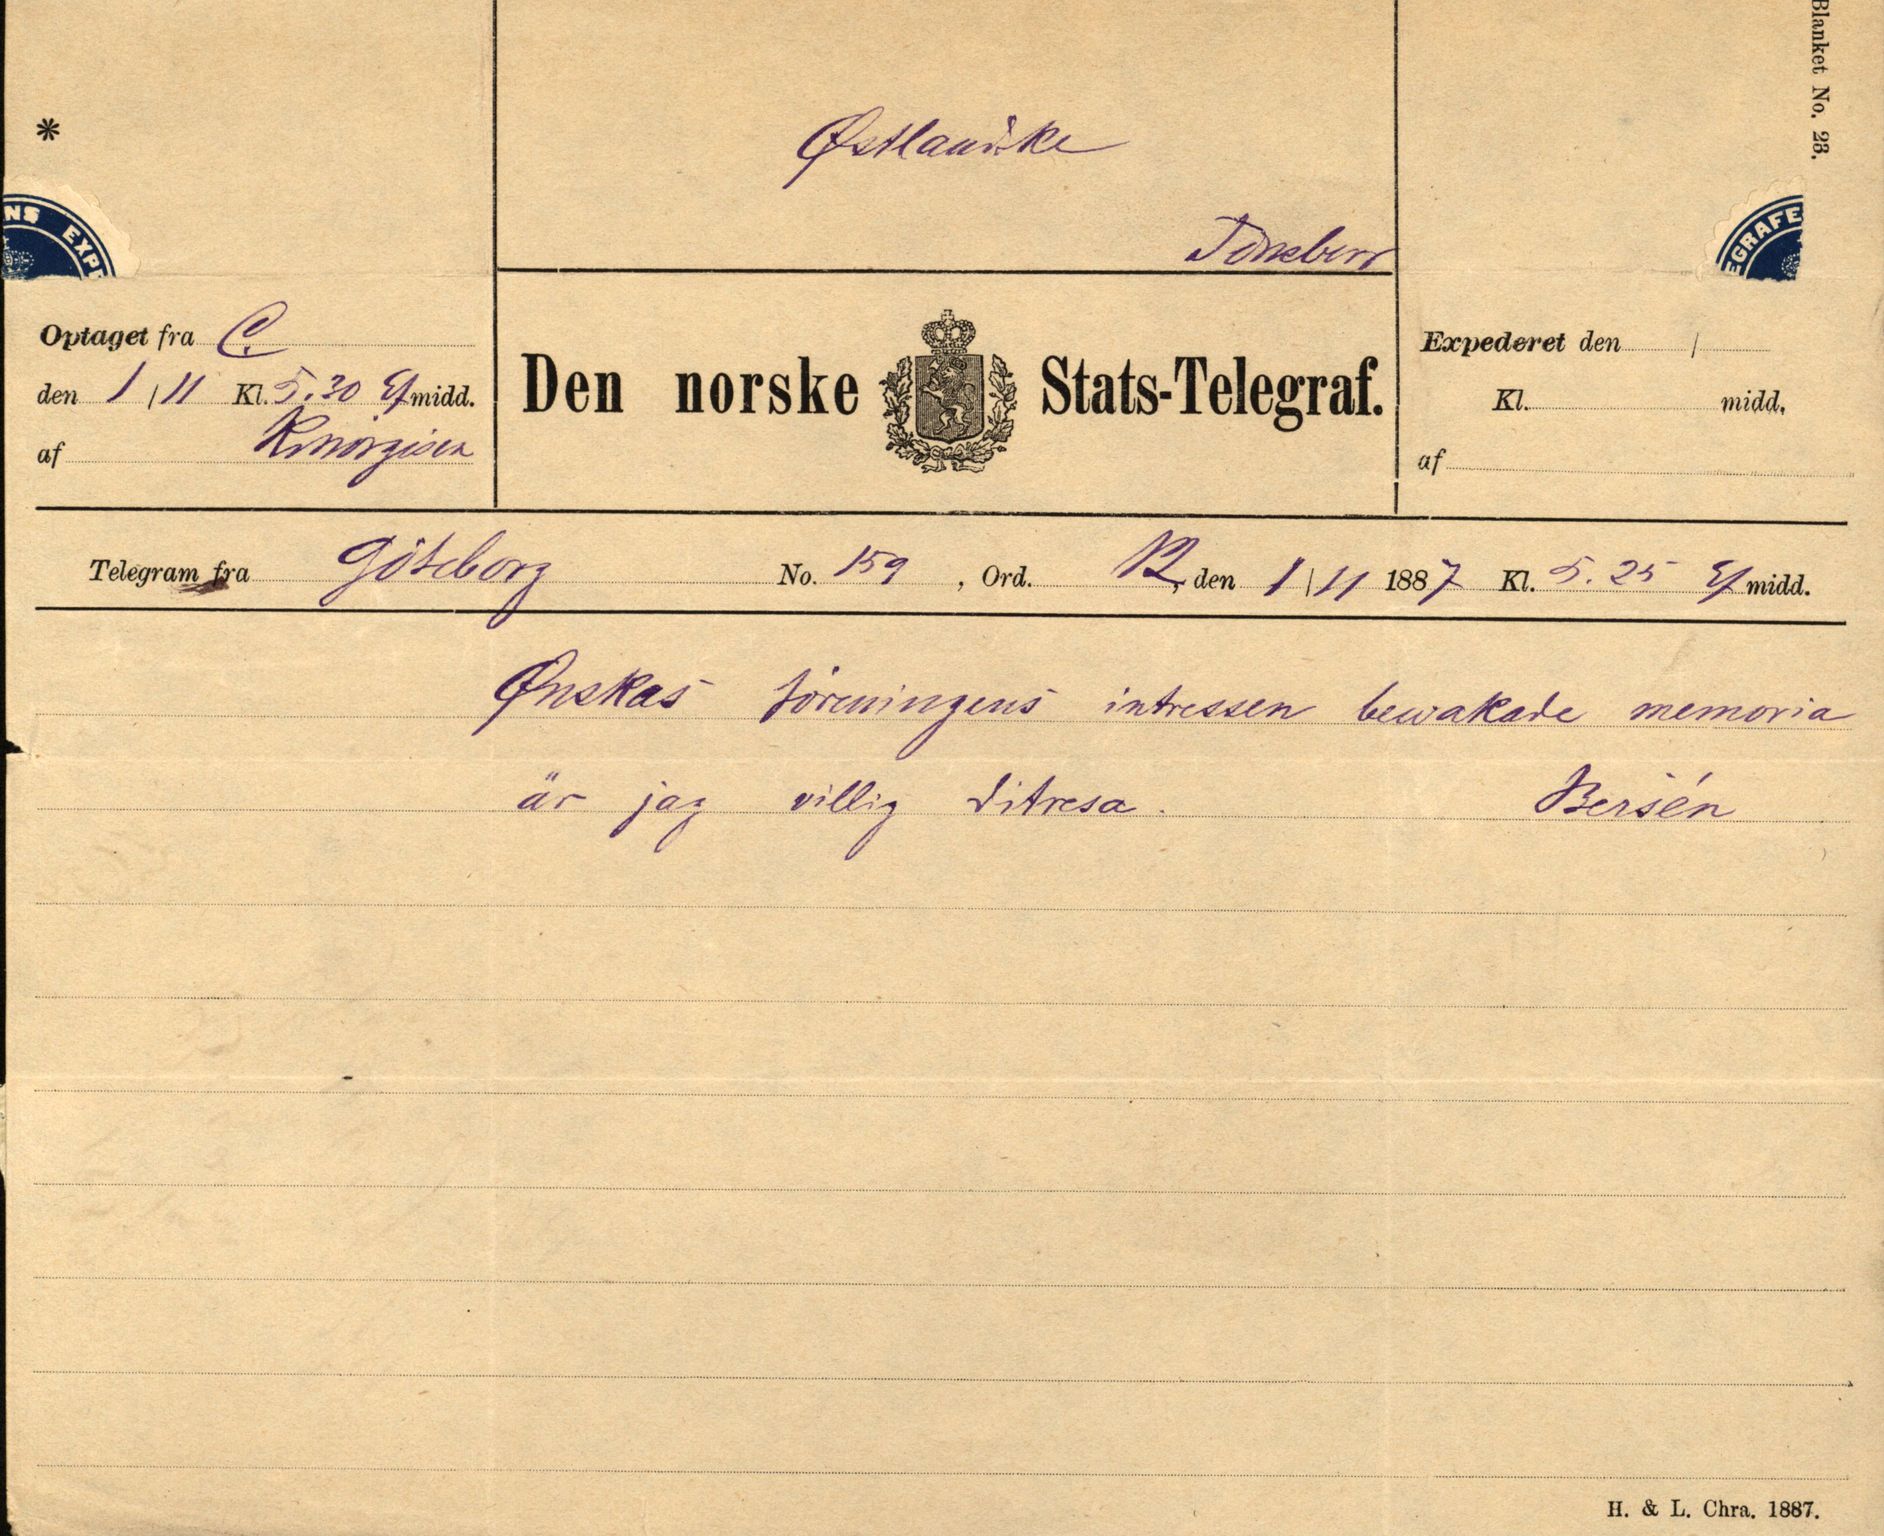 Blanket No. 23.
*
Østlandske
Tønsberg
NS EXPE
EGRAFE
Optaget fra C.
den 1/11 Kl. 5.30 Ef midd.
af
Den norske Stats-Telegraf.
Expederet den /
Kl. midd.
af
Telegram fra Göteborg No. 159, Ord. 12, den 1/11 1887 Kl. 5.25 Ef midd.
Ønskas föreningens intressen bewakade memoria
är jag villig ditresa. Bersén
H. & L. Chra. 1887.